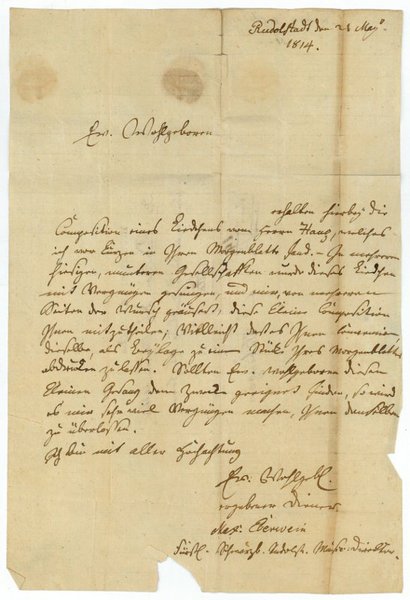 Rudolstadt den 21 May
1814.
Ew. Wohlgeboren
erhalten hierbey die
Composition eines Liedchens vom Herrn Haug, welches
ich vor kurzem in Ihrem Morgenblatte fand. – In mehreren
hiesigen, munteren Gesellschaften wurde dieses Liedchen
mit Vergnügen gesungen, und mir, von mehreren
Seiten der Wunsch geäußert, diese kleine Composition
Ihnen mitzutheilen; Vielleicht dass es Ihnen
dieselbe, als Beylage zu einem Stück Ihres Morgenblattes
abdrucken zu lassen. Sollten Ew. Wohlgeboren diesen
kleinen Gesang dem Zwecke geeignet finden, so wird
es mir sehr viel Vergnügen machen, Ihnen denselben
zu überlassen.
Ich bin mit aller Hochachtung
Ew. Wohlgeb.
ergebener Diener
Max. Eberwein
Fürstl. Schwarzb. Rudolst. Musik-Direktor.